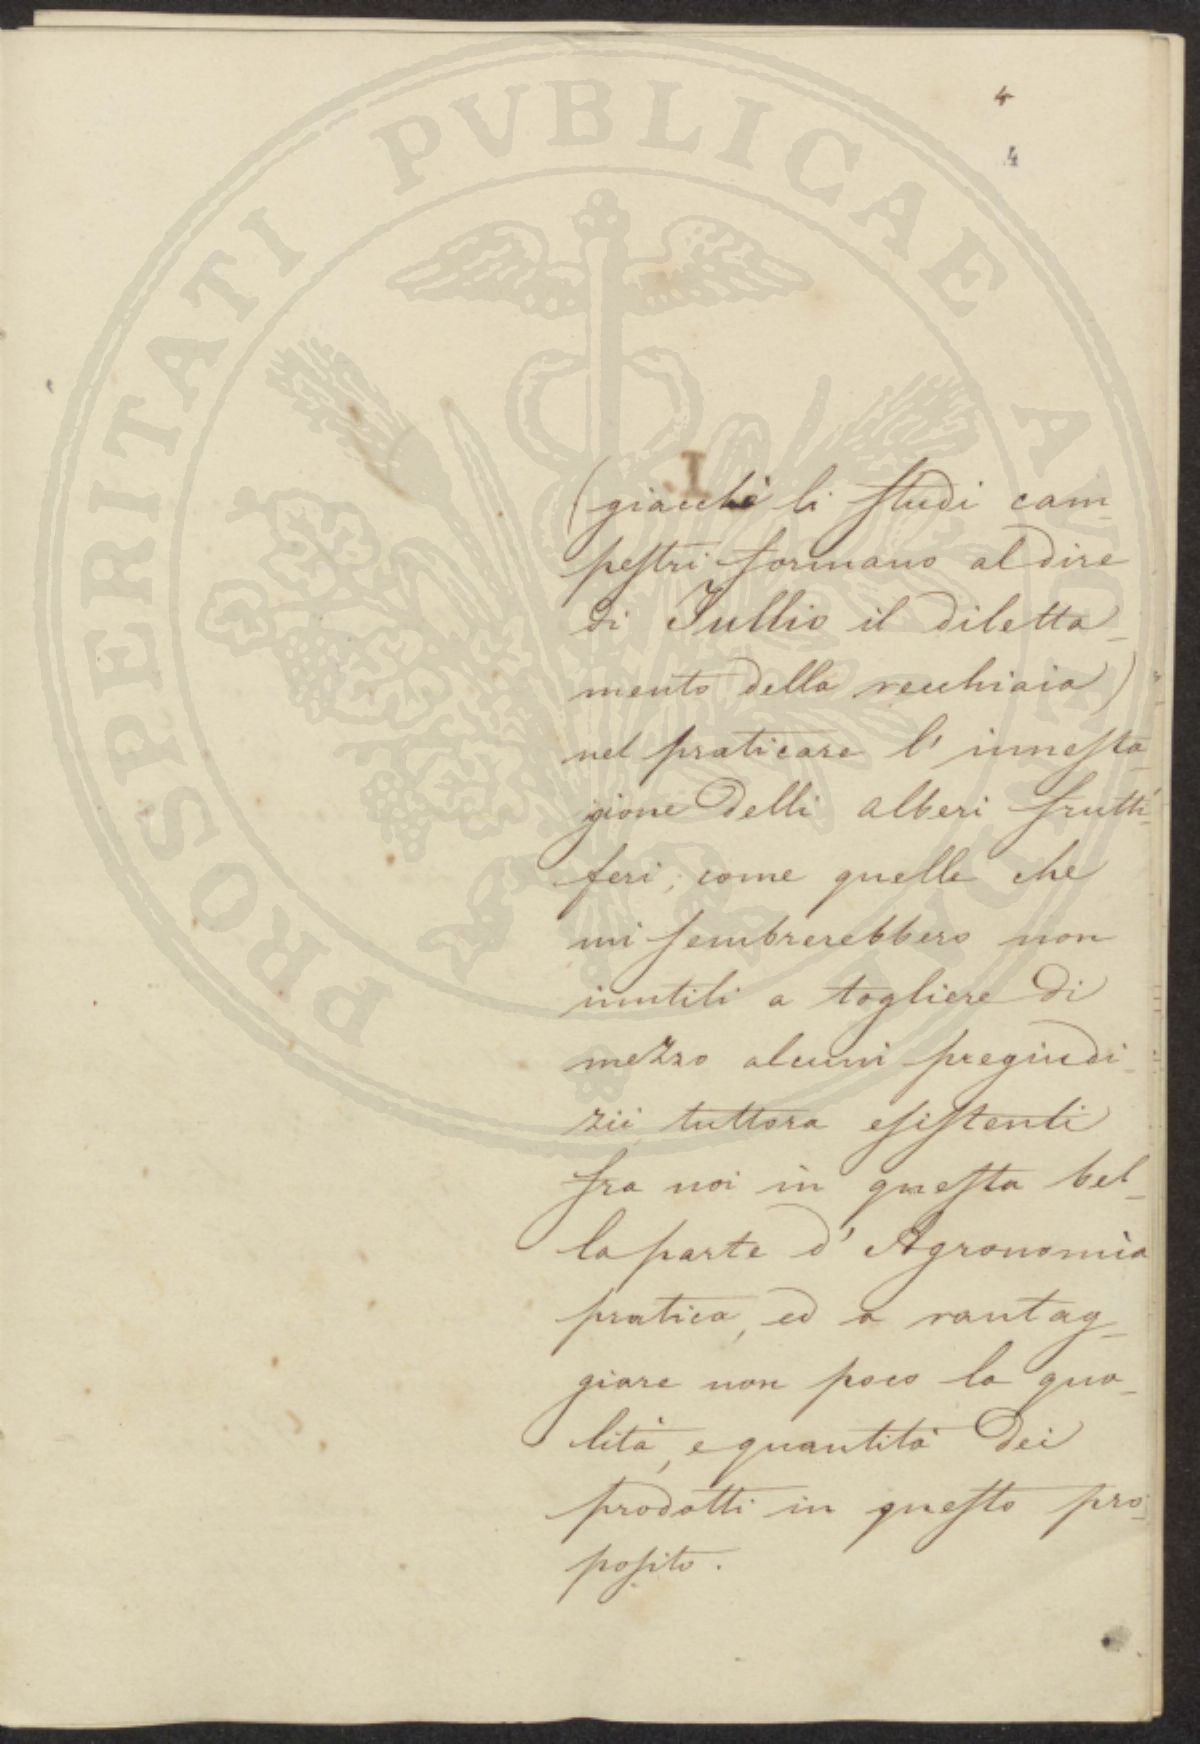 4
4
PROSPERITATI PVBLICAE AVGENDAE
(giacchè li studi cam-
pestri formano al dire
di Tullio il diletta-
mento della vecchiaia)
nel praticare l' innesta-
gione delli alberi frutti-
feri, come quelle che
mi sembrerebbero non
inutili a togliere di
mezzo alcuni pregiudi-
zii tuttora esistenti
fra noi in questa bel-
la parte d' Agronomìa
pratica, ed a vantag-
giare non poco la qua-
lità, e quantità dei
prodotti in questo pro-
posito.